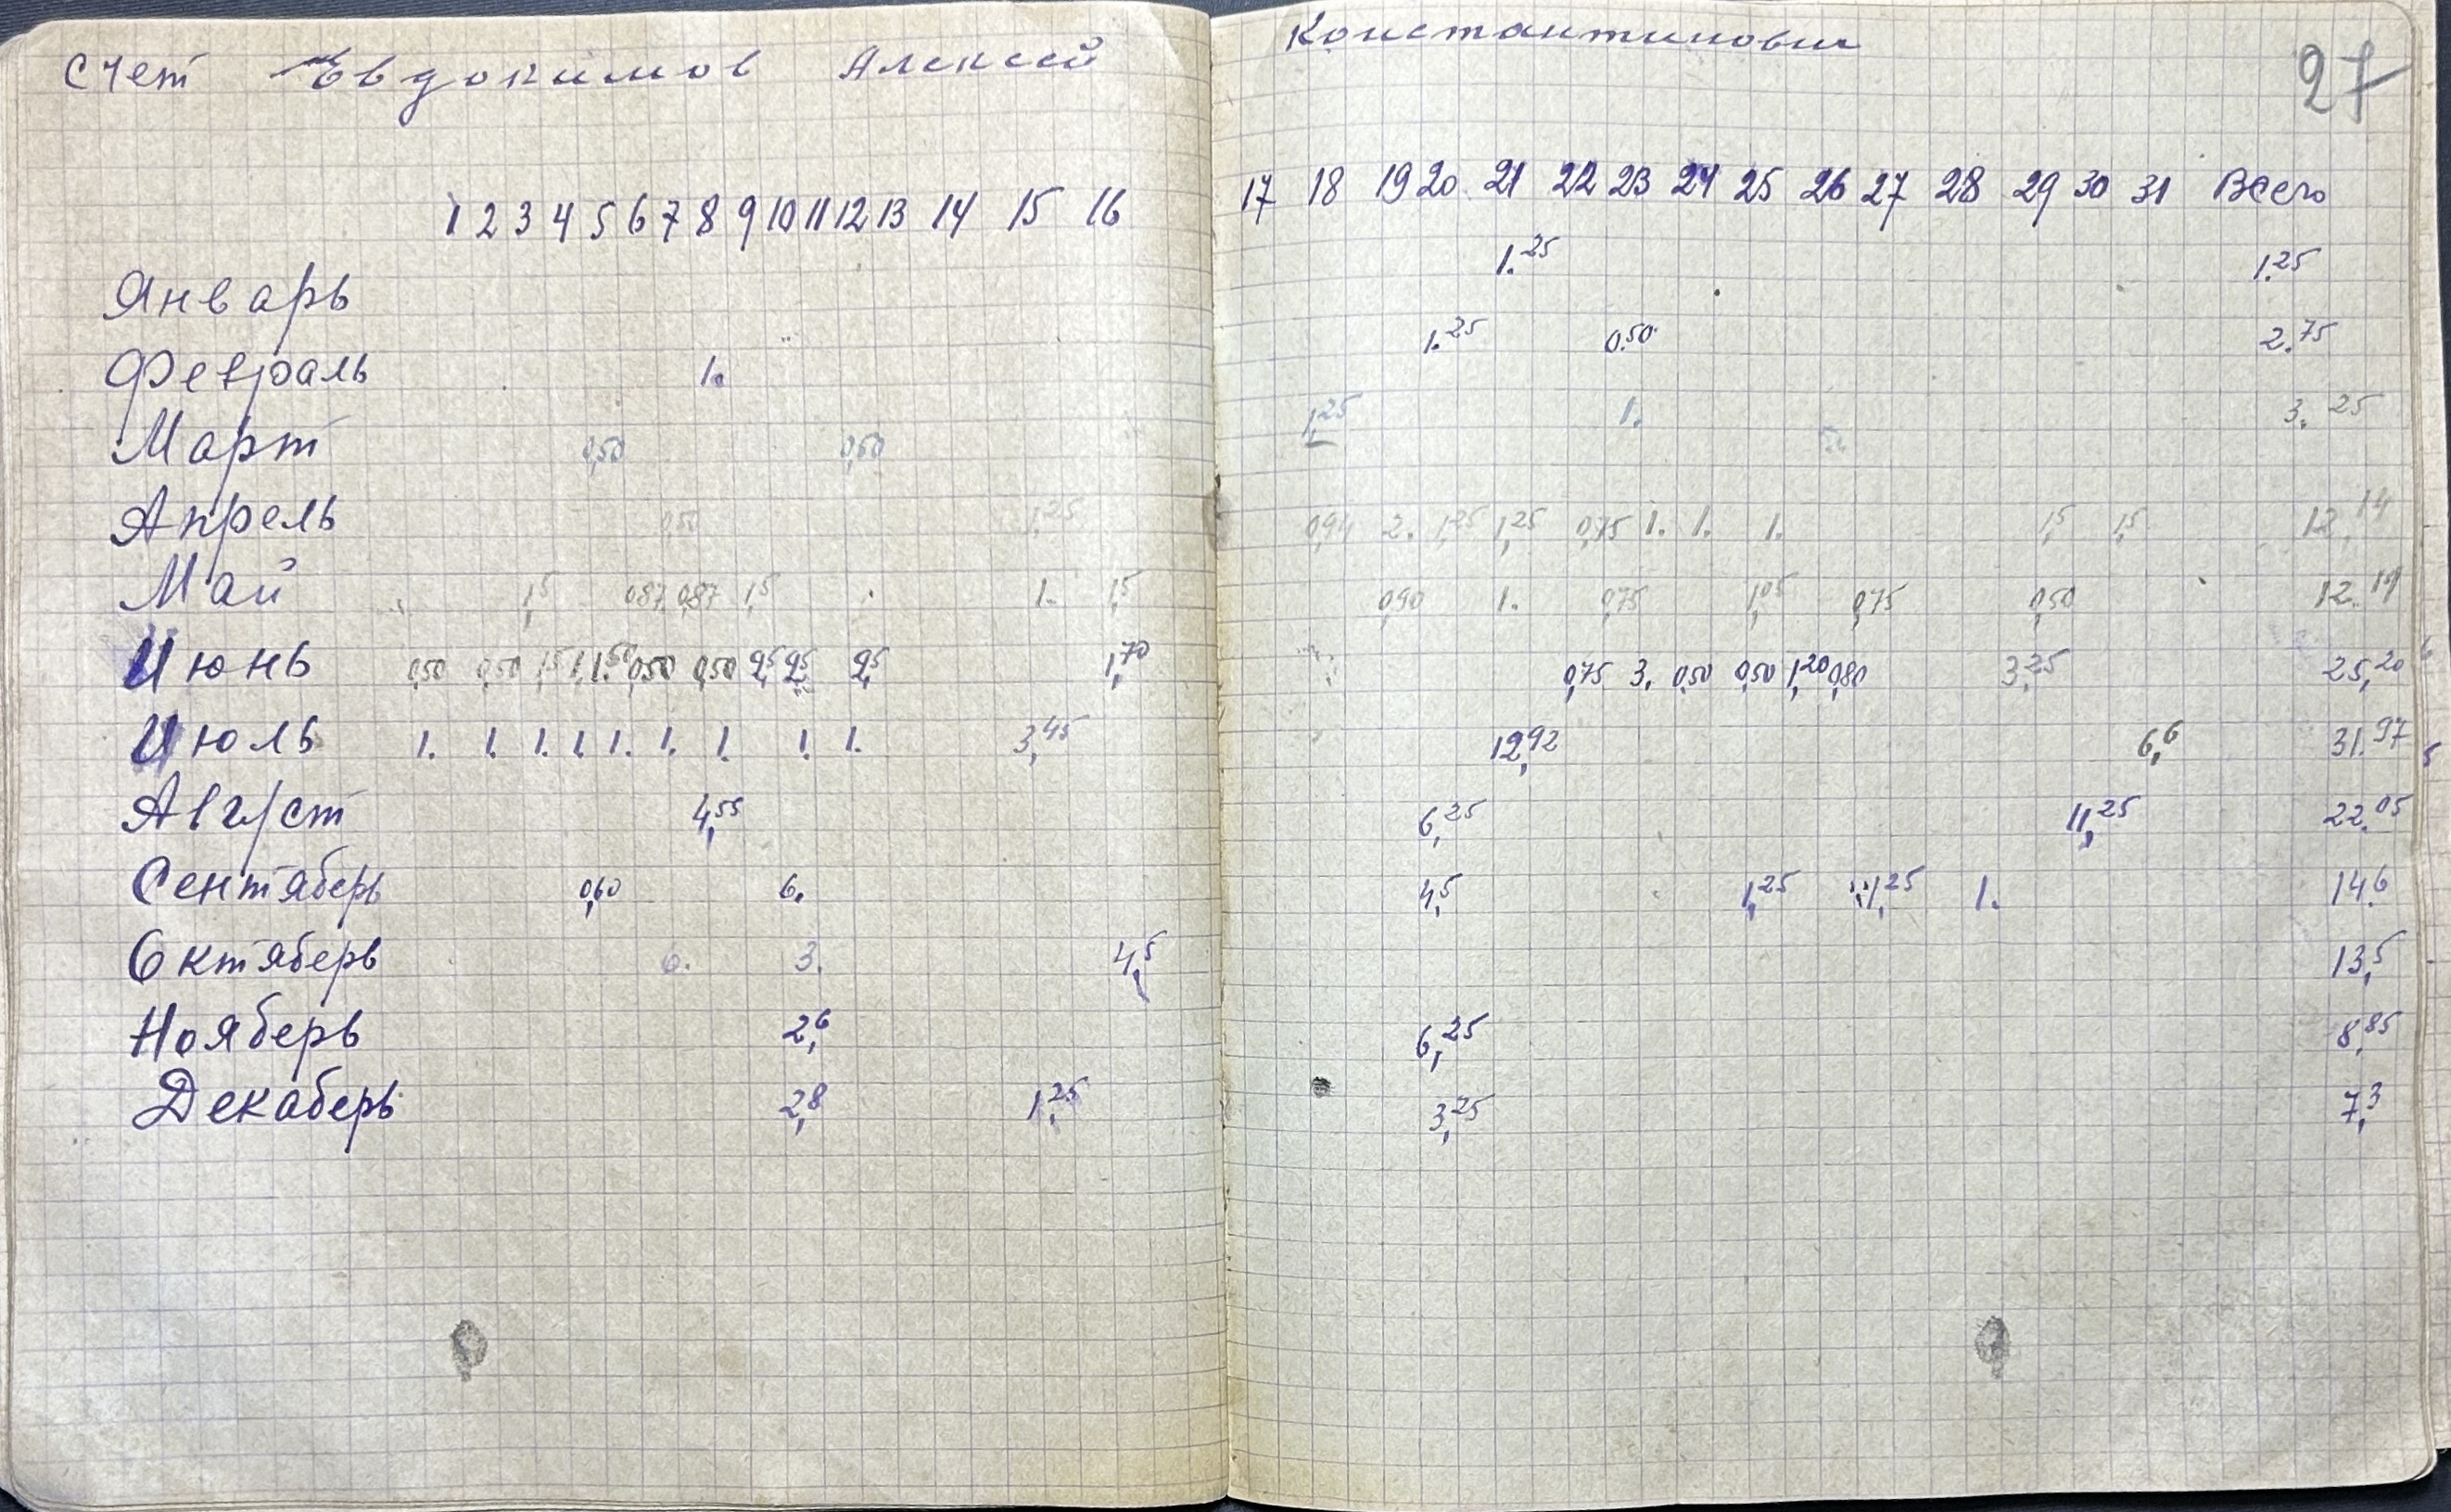 Счет Евдокимов Алексей Константинович
27
1 2 3 4 5 6 7 8 9 10 11 12 13 14 15 16 17 18 19 20 21 22 23 24 25 26 27 28 29 30 31 Всего
Январь 1.25 1.25
Февраль 1. 1.25 0.50 2.75
Март 0,50 0,50 1,25 1. 3.25
Апрель 0,50 1,25 0,94 2. 1,25 1,25 0,75 1. 1. 1. 1,5 1,5 12,14
Май 1,5 0,87 0,87 1,5 1. 1,5 0,90 1. 0,75 1,05 0,75 0,50 12.19
Июнь 0,50 0,50 1,5 1, 1.50 0,50 0,50 2,5 2,5 2,5 1,70 0,75 3, 0,50 0,50 1,20 0,80 3,25 25,20
Июль 1. 1. 1. 1. 1. 1. 1. 1. 1. 3,45 12,92 6,6 31.97
Август 4,55 6,25 11,25 22.05
Сентяберь 0,60 6. 4,5 1,25 1,25 1. 14.6
Октяберь 6. 3. 4,5 13,5
Нояберь 2,6 6,25 8,85
Декаберь 2,8 1,25 3,25 7,3